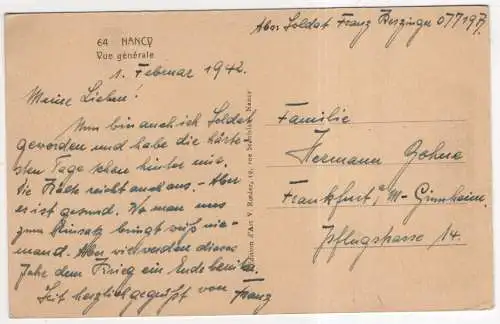 64 NANCY
Vue générale
Abs. Soldat Franz 07719
1. Februar 1942.
Meine Lieben!
Nun bin auch ich Soldat
geworden und habe die härte-
sten Tage schon hinter mir.
Die Kälte reicht auch aus. - Aber
es ist gesund. Wo man uns
zum Einsatz bringt weiß nie-
mand. Aber wir werden dieses
Jahr dem Krieg ein Ende bereiten.
Seid herzlich gegrüßt von Franz
Edition d'Art V. Rœder, 19, rue Stanislas, Nancy
Familie
Hermann
Frankfurt/M-Ginnheim.
Pflugstrasse 14.